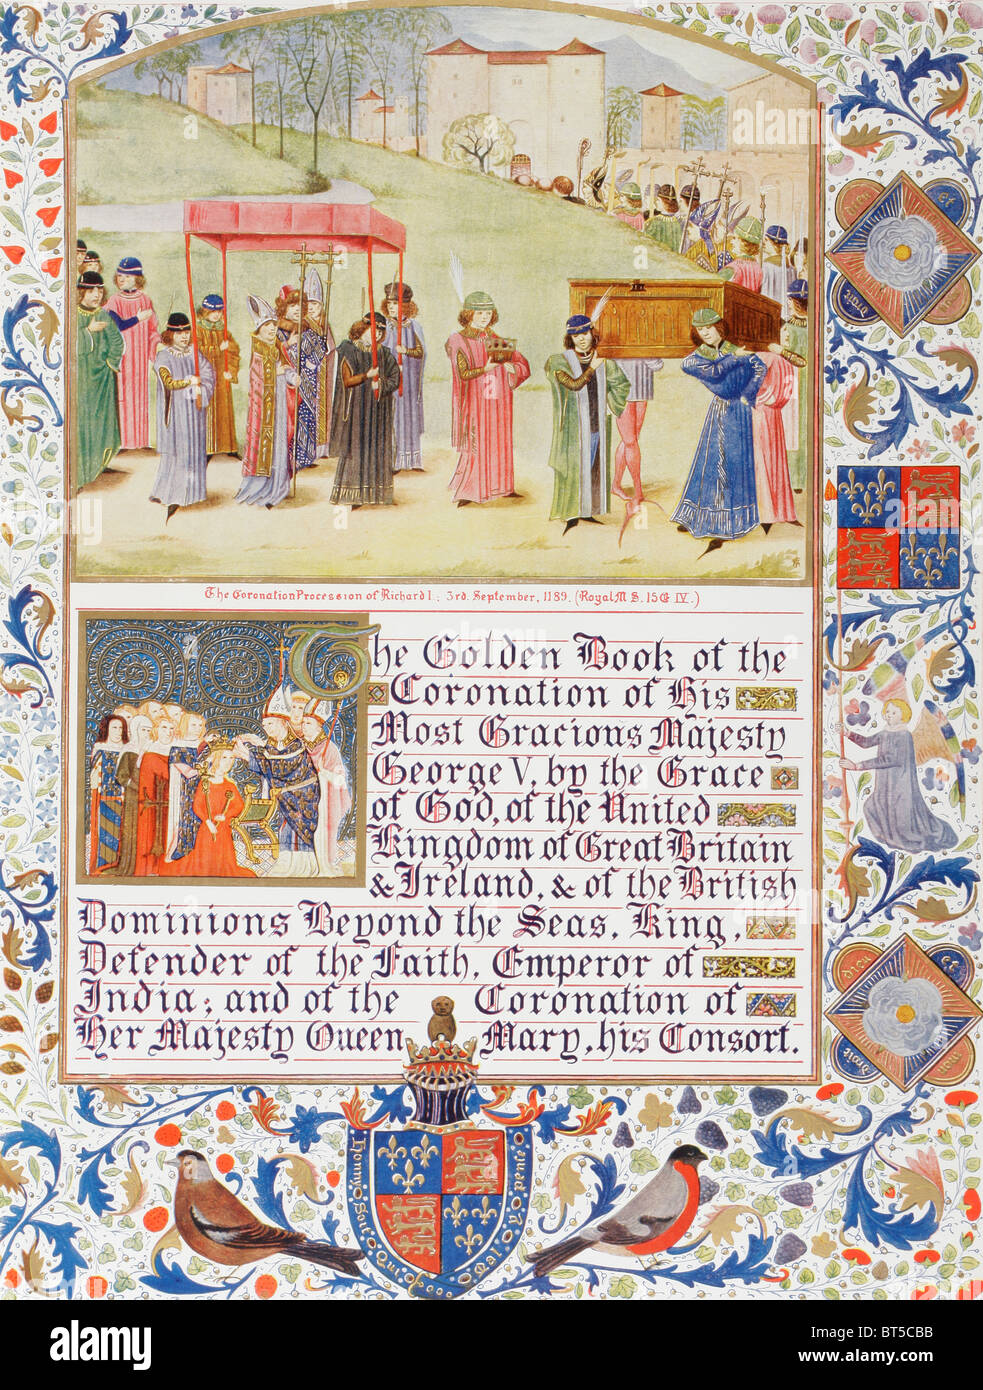 The Coronation Procession of Richard I.; 3rd. September, 1189. (Royal MS. 15 G IV.)
The Golden Book of the
Coronation of His
Most Gracious Majesty
George V, by the Grace
of God, of the United
Kingdom of Great Britain
& Ireland, & of the British
Dominions Beyond the Seas, King,
Defender of the Faith, Emperor of
India; and of the Coronation of
Her Majesty Queen Mary, his Consort.
dieu et
mon droit
dieu et
mon droit
Honny Soit Qui Mal Y Pense
alamy
BT5CBB
www.alamy.com